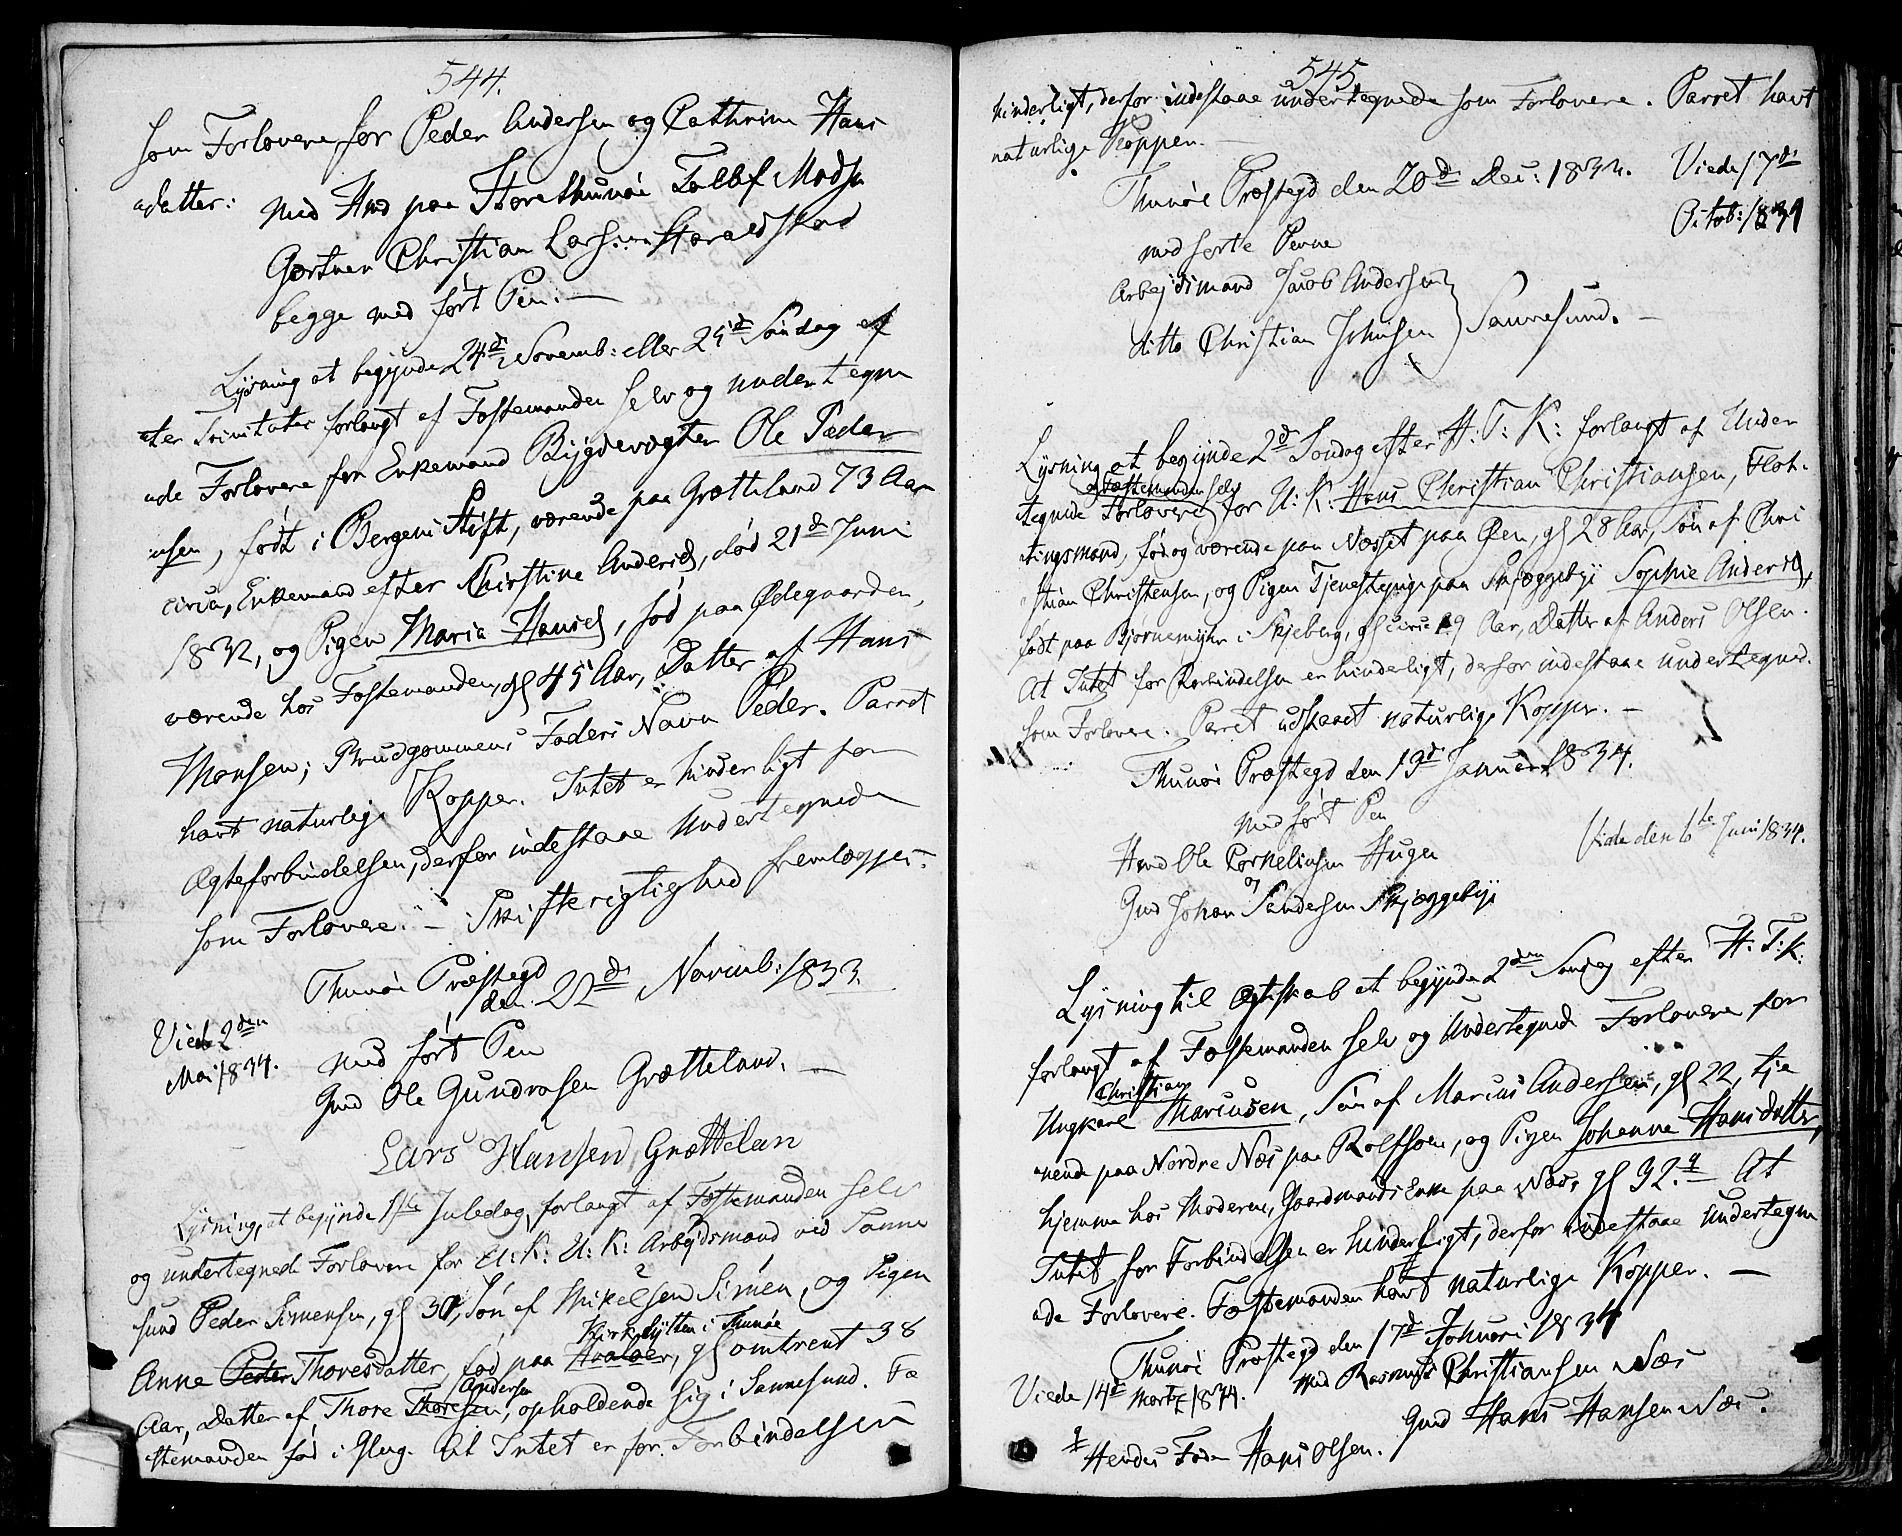 544.
som Forlovere for Peder Andersen og Cathrine Hans
datter:
med Hmd paa Storethunöe Mads
Gartner Christian Larsen
begge med ført Pen: —
Lysning at begynde 24de Novemb: eller 25de Söndag ef
ter Trinitatis forlangt af Fæstemanden selv og undertegn
ede Forlovere for Enkemand Bygdevægter Ole Peder
sen, født i Bergens Stift, værende paa Grætteland 73 Aar
circa, Enkemand efter Christine Andersd, død 21de Juni
1832, og Pigen Maria Hansd, fød paa Ødegaarden,
værende hos Fæstemanden, gl 45 Aar, Datter af Hans
Monsen; Brudgommens Faders Navn Peder. Parret
havt naturlige Kopper. Intet er hinderligt for
Ægteforbindelsen, derfor indestaae Undertegnede
som Forlovere. — Skifterigtighed fremlægges.
Thunöe Præstegd
den 22de Novemb: 1833
Viede 2den
Mai 1834.
med fört Pen
Gmd Ole Gundrosen Grætteland. —
Lars Hansen Grættelan
Lysning, at begynde 1ste Juledag, forlangt af Fæstemanden selv
og undertegnede Forlovere for U: K: U: K: Arbejdsmand ved Sanne
sund Peder Simensen, gl 30, Sön af Mikelsen Simen, og Pigen
Kirkehytten i Thunöe
Anne Peder Thoresdatter, fød paa Hvaløer, gl omtrent 38
Andersen
Aar, Datter af Thore Thoresen, opholdende sig i Sannesund. Fæ
stemanden fød i Glug. At Intet er for Forbindelsen
545
hinderligt, derfor indestaae undertegnede som Forlovere. Parret havt
naturlige Kopper. —
Thunöe Præstegd den 20de Dec: 1833.
Viede 17de
Octob: 1834
med førte Penne
Arbejdsmand Jacob Andersen
ditto Christian Johnsen } Sannesund. —
Lysning at begynde 2de Søndag efter H: T: K: forlangt af Under
og Fæstemanden selv
tegnede Forlovere for U: K: Hans Christian Christiansen, Flöt-
ningsmand, fød og værende paa Næsset paa Øen, gl 28 Aar, Sön af Chri
stian Christensen, og Pigen Tjenestepige paa Skjæggebye Sophie Andersd,
født paa Bjørnemyhr i Skjeberg, gl circa 29 Aar, Datter af Anders Olsen.
At Intet for Forbindelsen er hinderligt, derfor indestaae undertegned.
som Forlovere. Parret udstaaet naturlige Kopper. —
Thunöe Præstegd den 13de Januar 1834.
med ført Pen
Viede den 6te Juni 1834.
Hmd Ole Cornelinsen Hugen
og
Gmd Johan Sandersen Skjæggebye
Lysning til Ægteskab at begynde 2den Söndag efter H. T: K.
forlangt af Fæstemanden selv og Undertegnede Forlovere for
Christian
Ungkarl Mariusen, Sön af Marius Andersen, gl 22, tje
nende paa Nordre Næs paa Rolfsöen, og Pigen Johanne Hansdatter,
hjemme hos Moderen, Gaardmands Enke paa Næs, gl 32. At
Intet for Forbindelsen er hinderligt, derfor indestaae Undertegn
ede Forlovere. Fæstemanden havt naturlige Kopper. —
Thunöe Præstegd den 17de Januari 1834
Viede 14de Marts 1834.
Hmd Rasmus Christiansen Næs
Gmd Hans Hansen Næs.
Hendes Fader Hans Olsen.